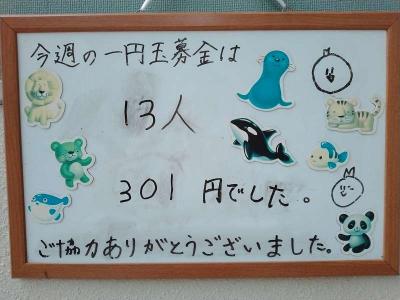 今週の一円玉募金は
13人
301円でした。
ご協力ありがとうございました。